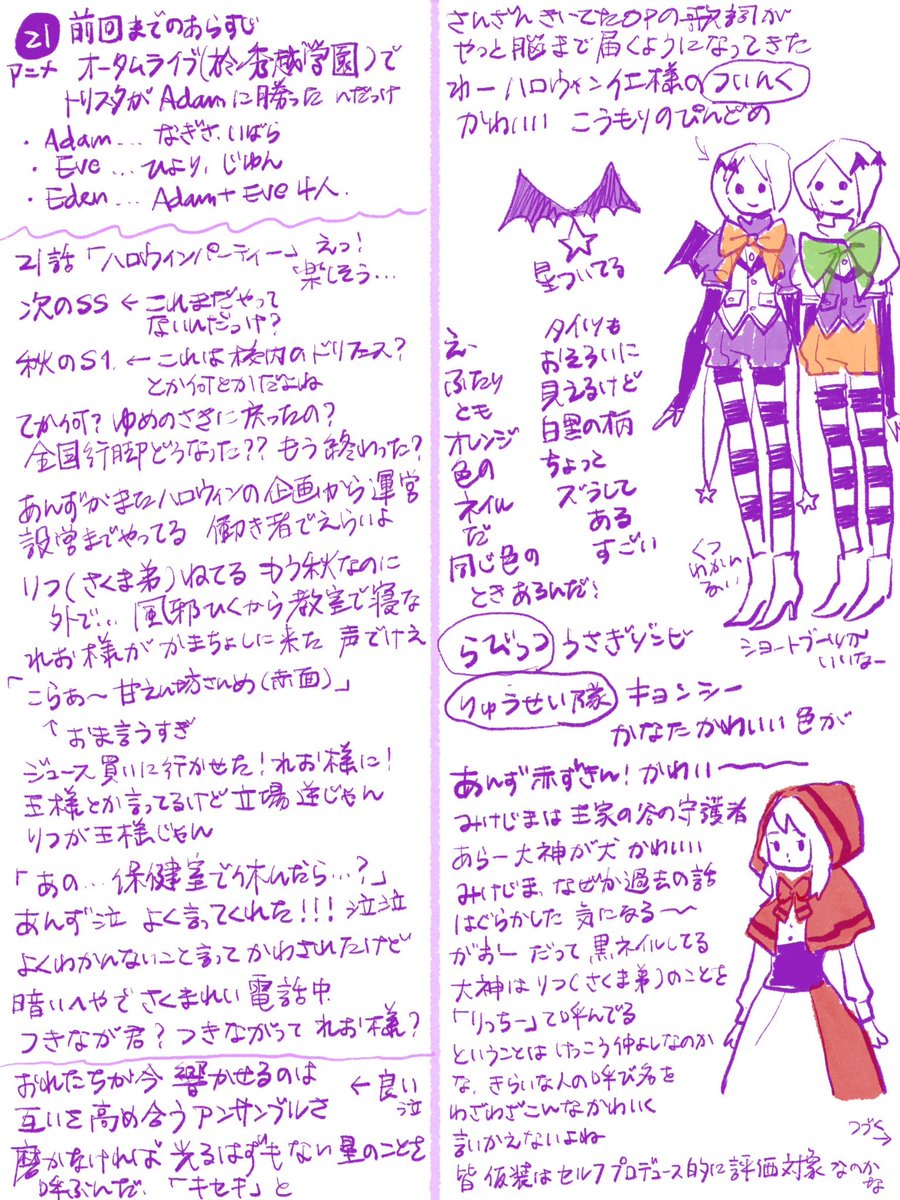 21 前回までのあらすじ
アニメ オータムライブ(於 秀越学園)で
トリスタがAdamに勝った んだっけ
・Adam… なぎさ、いばら
・Eve … ひより、じゅん
・Eden… Adam+Eve 4人.
21話「ハロウィンパーティー」 えっ!
楽しそう…
次のSS ← これまだやって
ないんだっけ?
秋のS1. ← これは校内のドリフェス?
とか何とかだよね
てか何? ゆめのさきに戻ったの?
全国行脚どうなった?? もう終わった?
あんずがまたハロウィンの企画から運営
設営までやってる 働き者でえらいよ
りつ(さくま弟)ねてる もう秋なのに
外で… 風邪ひくから教室で寝な
れお様がかまちょしに来た 声でけえ
「こらぁ〜甘えん坊さんめ(赤面)」
↑おま言うすぎ
ジュース買いに行かせた!れお様に!
王様とか言ってるけど立場逆じゃん
りつが王様じゃん
「あの… 保健室で休んだら…?」
あんず泣 よく言ってくれた!!! 泣泣
よくわかんないこと言ってかわされたけど
暗いへやでさくまれい電話中.
つきなが君? つきながって れお様?
おれたちが今 響かせるのは
互いを高め合うアンサンブルさ
← 良い
泣
磨かなければ光るはずもない星のことを
呼ぶんだ.「キセキ」と
さんざんきいてたOPの歌詞が
やっと脳まで届くようになってきた
わーハロウィン仕様のついんく
かわいい こうもりのぴんどめ
星ついてる
え、
ふたり
とも
オレンジ
色の
ネイル
だ
同じ色の
ときあるんだ!
タイツも
おそろいに
見えるけど
白黒の柄
ちょっと
ズラして
ある
すごい
くつ
わかん
ない
ショートブーツが
いいなー
らびっつ うさぎゾンビ
りゅうせい隊 キョンシー
かなたかわいい 色が
あんず赤ずきん! かわいー
みけじまは王家の谷の守護者
あらー大神が犬 かわいい
みけじま、なぜか過去の話
はぐらかした 気になる〜
がおー だって 黒ネイルしてる
大神はりつ(さくま弟)のことを
「りっちー」て呼んでる
ということは けっこう仲よしなのか
な、きらいな人の呼び名を
わざわざこんなかわいく
言いかえないよね
つづく→
皆仮装はセルフプロデュース的に評価対象なのかな